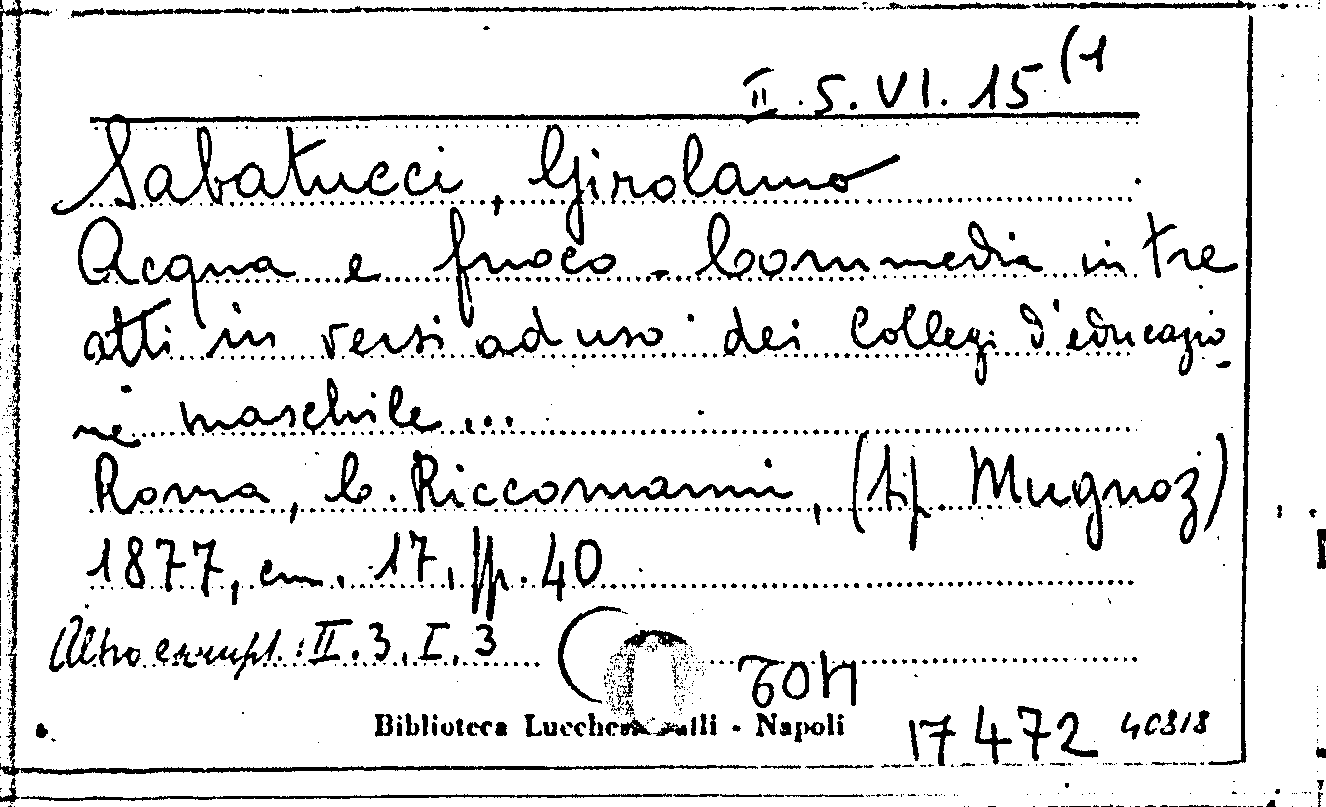 II.5.VI.15(1
Sabatucci, Girolamo
Acqua e fuoco - Commedia in tre
atti in versi ad uso dei Collegi d'educazio
ne maschile...
Roma, C. Riccomanni, (tip. Mugnoz)
1877, cm. 17, pp. 40
Altro esempl.: II.3.I.3
Biblioteca Lucchesi Palli - Napoli
17472 40818